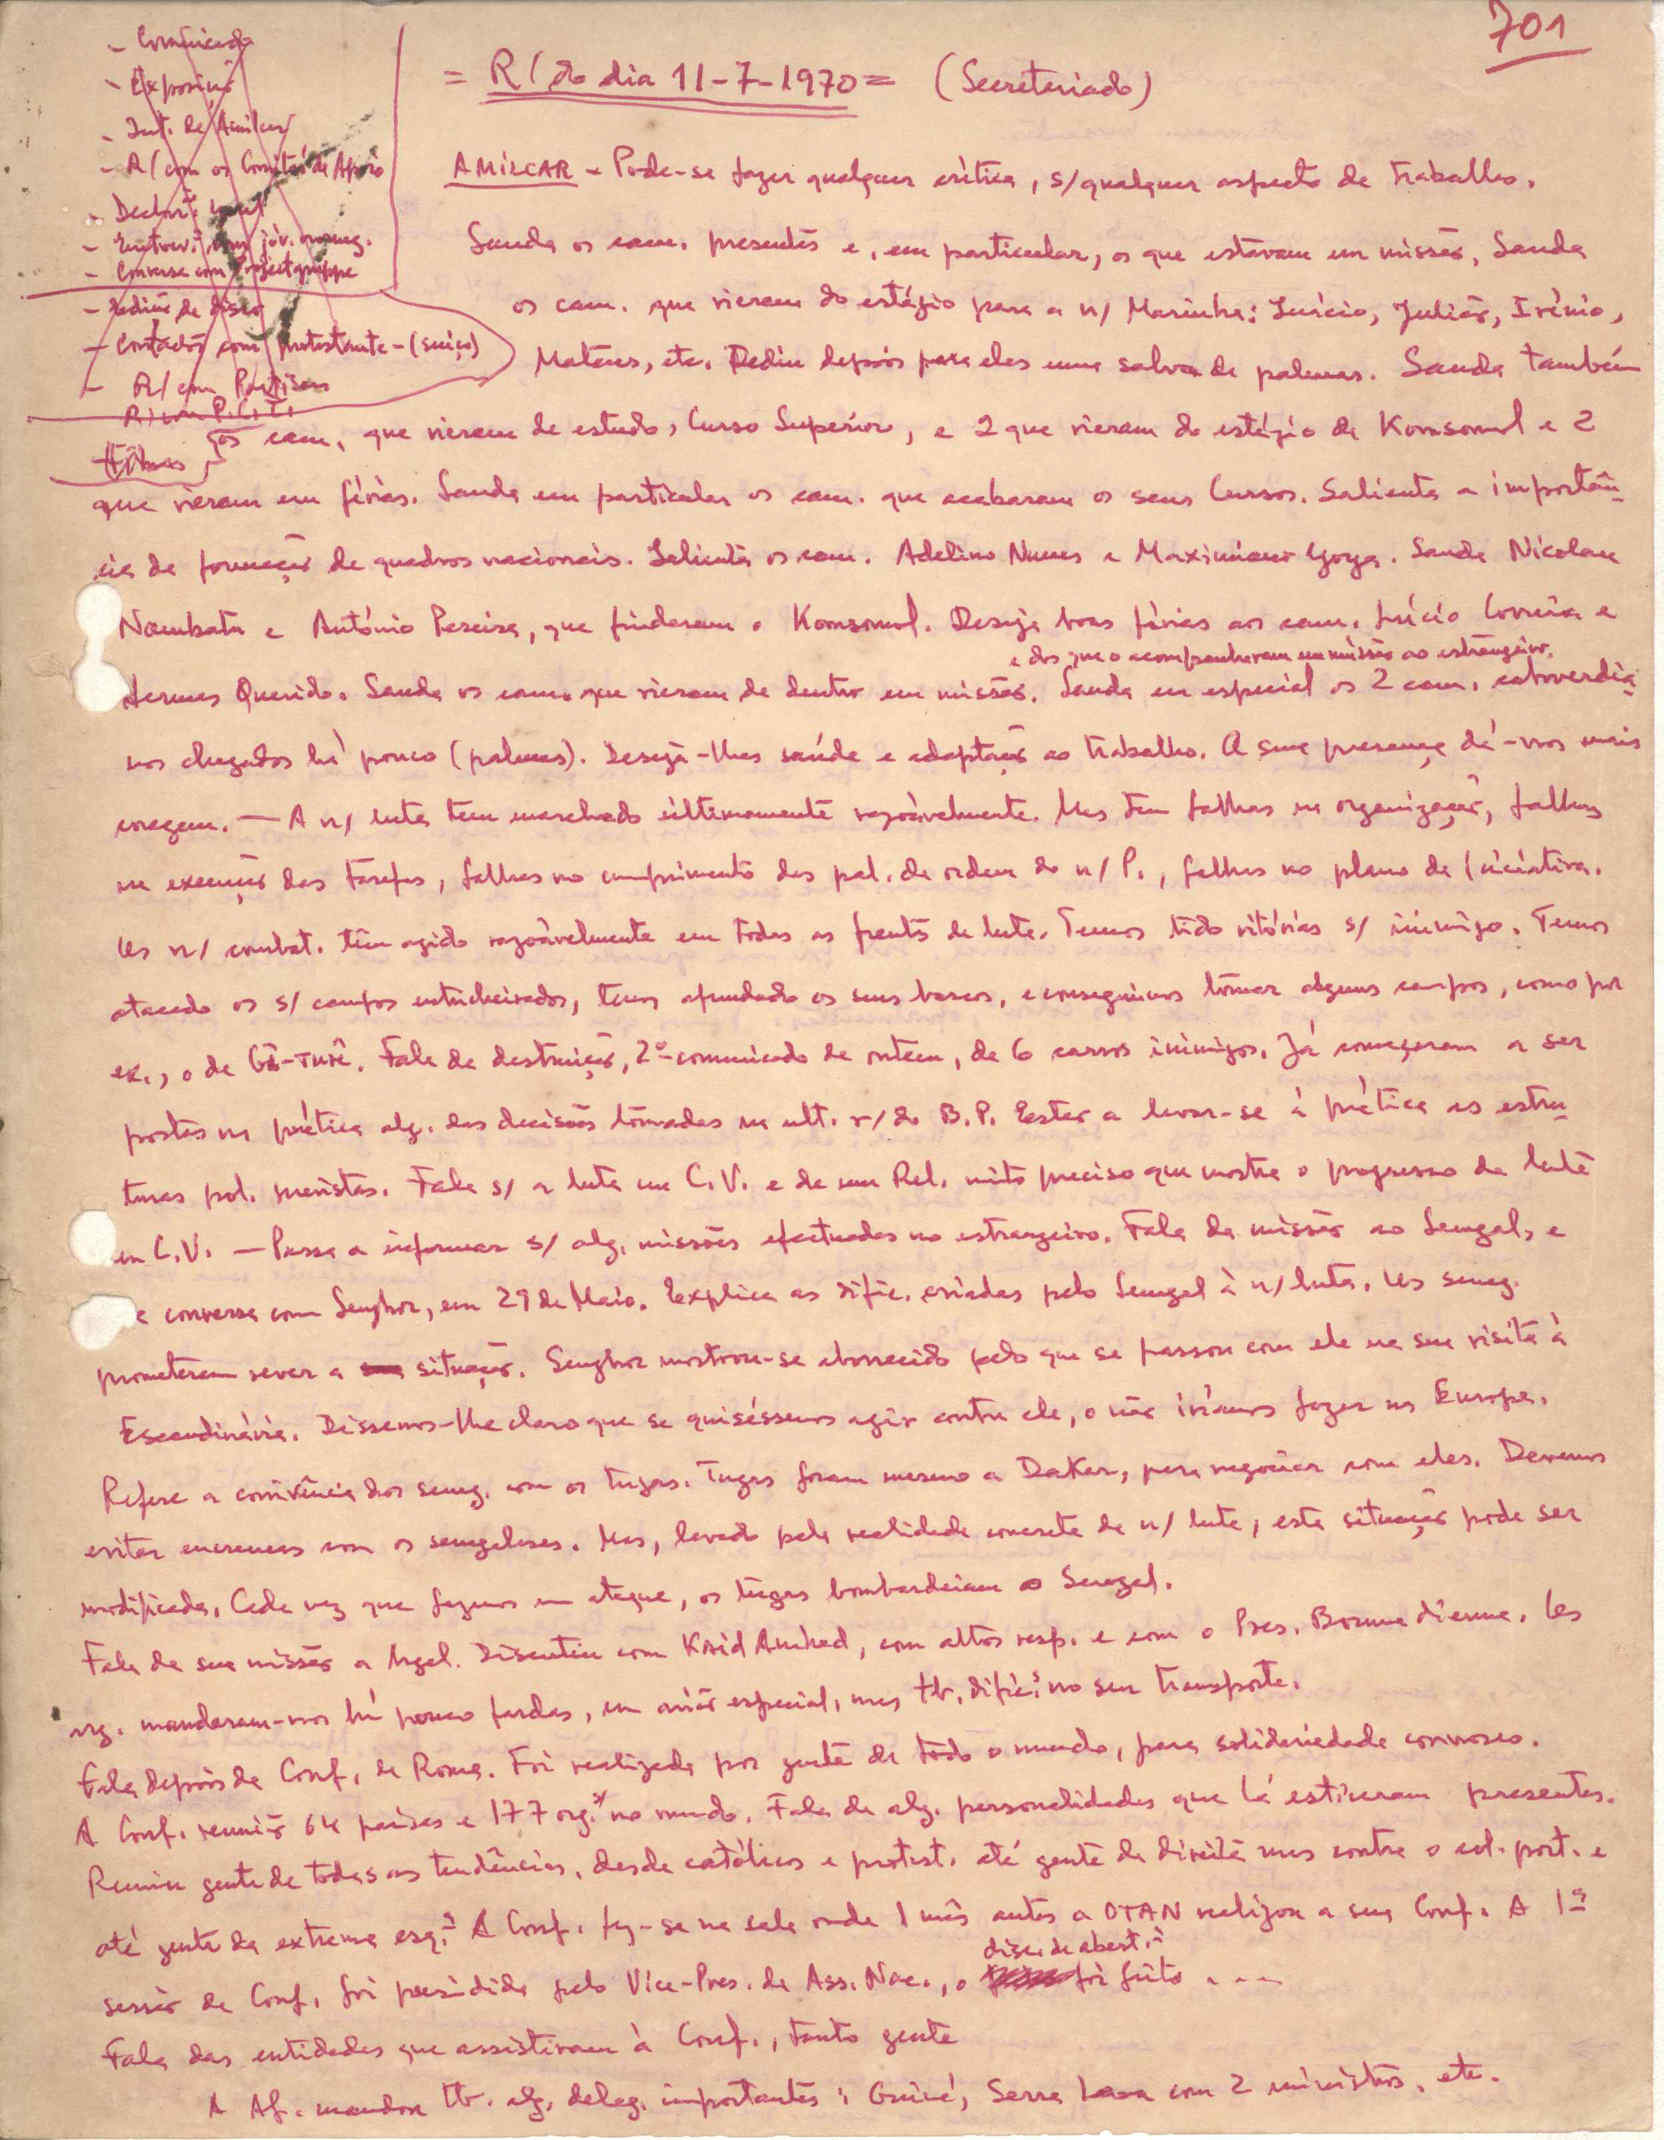 701
- Comunicado
- Exposição
- Int. de Amílcar
- R/ com os Comités de Apoio
- Declar. 
- Entrev. com jov. 
- Conversa com Projectgruppe
- Edição de disco
- Contactos com Protestante - (suíço)
- R/ com Partisans
R/ com P.C.I.
Filmes
= R/ do dia 11-7-1970 = (Secretariado)
AMÍLCAR - Pode-se fazer qualquer crítica, s/ qualquer aspecto de trabalho.
Sauda os cam. presentes e, em particular, os que estavam em missão. Sauda
os cam. que vieram do estágio para a n/ Marinha: Lúcio, Julião, Irénio,
Mateus, etc. Pediu depois para eles uma salva de palmas. Sauda também
os cam. que vieram de estudo, Curso Superior, e 2 que vieram do estágio da Komsomol e 2
que vieram em férias. Sauda em particular os cam. que acabaram os seus Cursos. Salienta a importân-
cia da formação de quadros nacionais. Salienta os cam. Adelino Nunes e Maximiano . Sauda Nicolau
Nambatu e António Pereira, que findaram o Komsomol. Deseja boas férias aos cam. Lúcio Correia e
e dos que o acompanharam em missão ao estrangeiro.
Hermes Querido. Sauda os cam. que vieram de dentro em missão. Sauda em especial os 2 cam. caboverdia-
nos chegados há pouco (palmas). Deseja-lhes saúde e adaptação ao trabalho. A sua presença dá-nos mais
coragem. - A n/ luta tem marchado últimamente razoàvelmente. Mas tem falhas na organização, falhas
na execução das tarefas, falhas no cumprimento das pal. de ordem do n/ P., falhas no plano da iniciativa.
Os n/ combat. têm agido razoàvelmente em todas as frentes de luta. Temos tido vitórias s/ inimigo. Temos
atacado os s/ campos entricheirados, temos afundado os seus barcos, e conseguimos tomar alguns campos, como por
ex., o de Gã-Turé. Fala da destruição, 2º comunicado de ontem, de 6 carros inimigos. Já começaram a ser
postas na prática alg. das decisões tomadas na ult. r/ do B.P. Estão a levar-se à prática as estru-
turas pol. previstas. Fala s/ a luta em C.V. e de um Rel. muito preciso que mostra o progresso da luta
em C.V. - Passa a informar s/ alg. missões efectuadas no estrangeiro. Fala da missão ao Senegal, e
a conversa com Senghor, em 29 de Maio. Explica as dific. criadas pelo Senegal à n/ luta. Os seneg.
prometeram rever a situação. Senghor mostrou-se aborrecido pelo que se passou com ele na sua visita à
Escandinávia. Dissemos-lhe claro que se quiséssemos agir contra ele, o não iríamos fazer na Europa.
Refere a conivência dos seneg. com os tugas. Tugas foram mesmo a Dakar, para negociar com eles. Devemos
evitar encrencas com os senegaleses. Mas, levado pela realidade concreta da n/ luta, esta situação pode ser
modificada. Cada vez que fazemos um ataque, os tugas bombardeiam o Senegal.
Fala da sua missão a Argel. Discutiu com Kaid Amhed, com altos resp. e com o Pres. Boumedienne. Os
arg. mandaram-nos há pouco fardas, em avião especial, mas tb. dific.s no seu transporte.
Fala depois da Conf. de Roma. Foi realizada por gente de todo o mundo, para solidariedade connosco.
A Conf. reuniu 64 países e 177 org. no mundo. Fala de alg. personalidades que lá estiveram presentes.
Reuniu gente de todas as tendências, desde católicos e protest. até gente da direita mas contra o col. port. e
até gente da extrema esq.ª A Conf. fez-se na sala onde 1 mês antes a OTAN realizou a sua Conf. A 1ª
disc. de abert.ª
sessão da Conf. foi presidida pelo Vice-Pres. da Ass. Nac., o foi feito ...
Fala das entidades que assistiram à Conf., tanto gente
A Af. mandou tb. alg. deleg. importantes: Guiné, Serra Leoa com 2 ministros, etc.